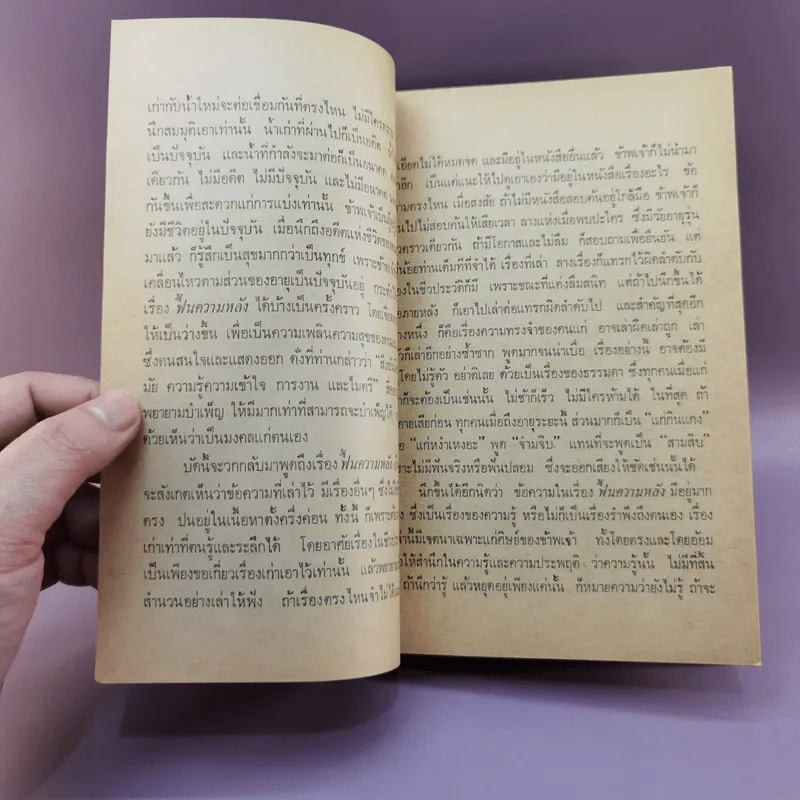 เก่ากับน้ำใหม่จะต่อเชื่อมกันที่ตรงไหน ไม่มีใครทราบ
นึกสมมุติเอาเท่านั้น น้ำเก่าที่ผ่านไปก็เป็นอดีต
เป็นปัจจุบัน และน้ำที่กำลังจะมาต่อก็เป็นอนาคต
เดียวกัน ไม่มีอดีต ไม่มีปัจจุบัน และไม่มีอนาคต
กันขึ้นเพื่อสะดวกแก่การแบ่งเท่านั้น ข้าพเจ้าเป็น
ยังมีชีวิตอยู่ในปัจจุบัน เมื่อนึกถึงอดีตแห่งชีวิตของ
มาแล้ว ก็รู้สึกเป็นสุขมากกว่าเป็นทุกข์ เพราะข้าพเจ้า
เคลื่อนไหวตามส่วนของอายุเป็นปัจจุบันอยู่
เรื่อง ฟื้นความหลัง ได้บ้างเป็นครั้งคราว
ให้เป็นว่างขึ้น เพื่อเป็นความเพลินความสุขของ
ซึ่งตนสนใจและแสดงออก ดังที่ท่านกล่าวว่า
มัย ความรู้ความเข้าใจ การงาน และไมตรี"
พยายามบำเพ็ญ ให้มีมากเท่าที่สามารถจะบำเพ็ญได้
ด้วยเห็นว่าเป็นมงคลแก่ตนเอง
บัดนี้จะวกกลับมาพูดถึงเรื่อง ฟื้นความหลัง
จะสังเกตเห็นว่าข้อความที่เล่าไว้ มีเรื่องอื่นๆ ซึ่ง
ตรง ปนอยู่ในเนื้อหาตั้งครึ่งค่อน ทั้งนี้ ก็เพราะ
เก่าเท่าที่ตนรู้และระลึกได้ โดยอาศัยเรื่องใน
เป็นเพียงขอเกี่ยวเรื่องเก่าเอาไว้เท่านั้น แล้วพยายาม
สำนวนอย่างเล่าให้ฟัง ถ้าเรื่องตรงไหนจำไม่ได้
เอียดไม่ได้หมดจด และมีอยู่ในหนังสืออื่นแล้ว ข้าพเจ้าก็ไม่นำมา
อีก เป็นแต่แนะให้ไปดูเอาเองว่ามีอยู่ในหนังสือเรื่องอะไร ข้อ
ตรงไหน เมื่อสงสัย ถ้าไม่มีหนังสือสอบค้นอยู่ใกล้มือ ข้าพเจ้าก็
ไปไม่สอบค้นให้เสียเวลา ลางแห่งเมื่อพบปะใคร ซึ่งมีวัยอายุรุ่น
คราวเดียวกัน ถ้ามีโอกาสและไม่ลืม ก็สอบถามเพื่อยืนยัน แต่
น้อยท่านเต็มทีที่จำได้ เรื่องที่เล่า ลางเรื่องก็แทรกไว้ผิดลำดับกับ
ในชีวประวัติก็มี เพราะขณะที่แต่งลืมสนิท แต่ถ้าไปนึกขึ้นได้
ภายหลัง ก็เอาไปเล่าต่อแทรกผิดลำดับไป และสำคัญที่สุดอีก
หนึ่ง ก็คือเรื่องความทรงจำของคนแก่ อาจเล่าผิดเล่าถูก เล่า
ก็เล่าอีกอย่างซ้ำซาก พูดมากจนน่าเบื่อ เรื่องอย่างนี้ อาจต้องมี
โดยไม่รู้ตัว อย่าติเลย ด้วยเป็นเรื่องของธรรมดา ซึ่งทุกคนเมื่อแก่
ก็จะต้องเป็นเช่นนั้น ไม่ช้าก็เร็ว ไม่มีใครห้ามได้ ในที่สุด ถ้า
ตายเสียก่อน ทุกคนเมื่อถึงอายุระยะนี้ ส่วนมากก็เป็น "แก่กินแกง"
"แก่หง่ำเหงอะ" พูด "จ๋ามจิบ" แทนที่จะพูดเป็น "สามสิบ"
เพราะไม่มีฟันจริงหรือฟันปลอม ซึ่งจะออกเสียงให้ชัดเช่นนั้นได้
นึกขึ้นได้อีกนิดว่า ข้อความในเรื่อง ฟื้นความหลัง มีอยู่มาก
ซึ่งเป็นเรื่องของความรู้ หรือไม่ก็เป็นเรื่องรำพึงถึงตนเอง เรื่อง
นี้มีเจตนาเฉพาะแก่ศิษย์ของข้าพเจ้า ทั้งโดยตรงและโดยอ้อม
ให้สำนึกในความรู้และความประพฤติ ว่าความรู้นั้น ไม่มีที่สิ้น
ถ้านึกว่ารู้ แล้วหยุดอยู่เพียงแค่นั้น ก็หมายความว่ายังไม่รู้ ถ้าจะ